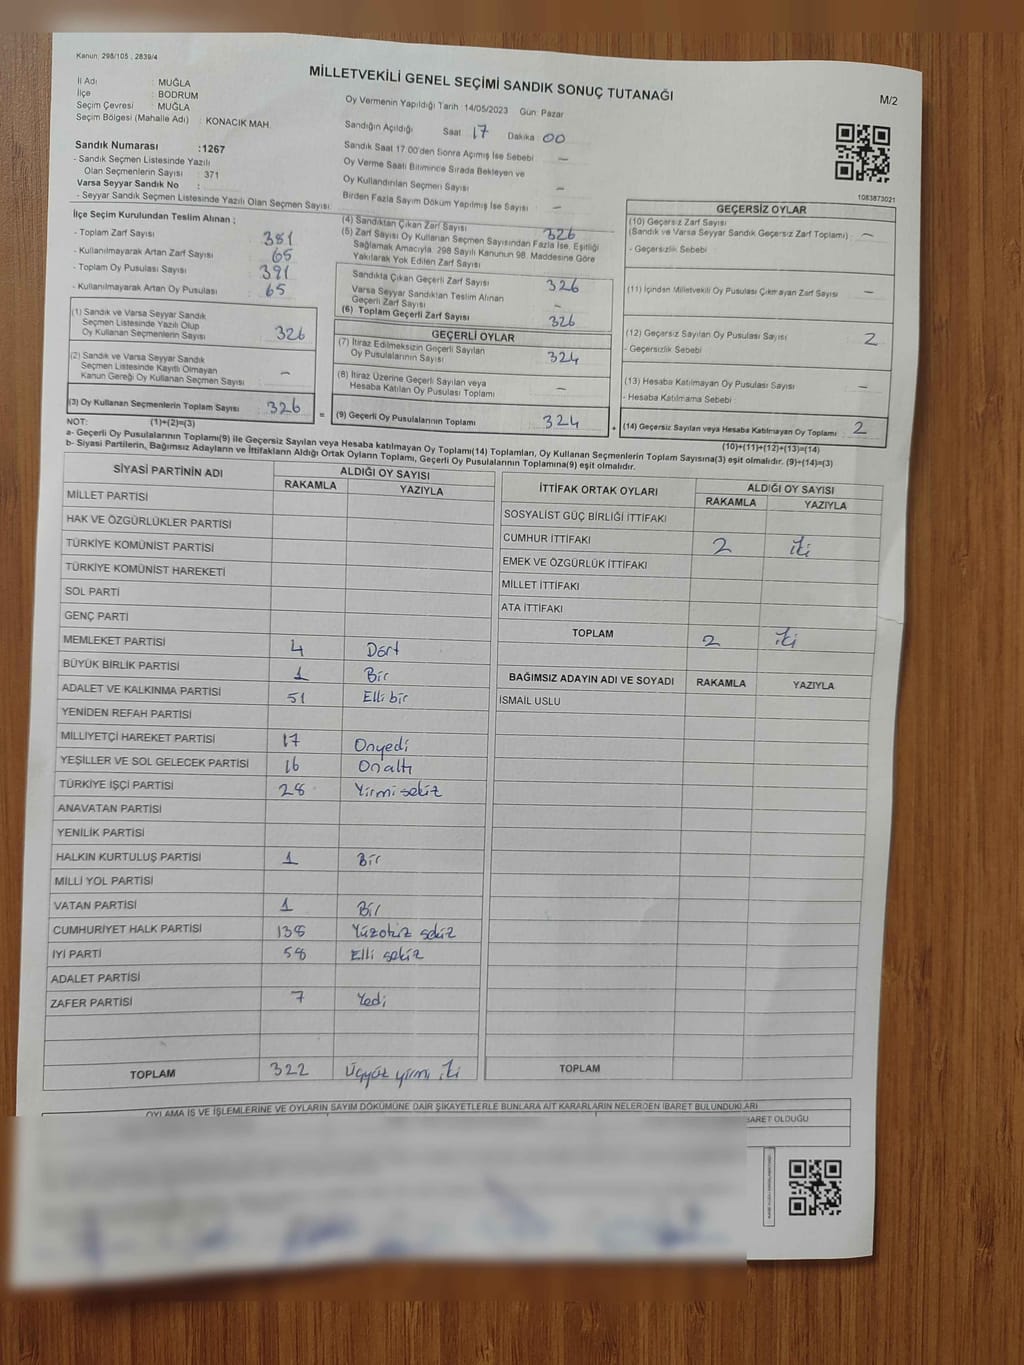 Kanun: 298/105 , 2839/4
MİLLETVEKİLİ GENEL SEÇİMİ SANDIK SONUÇ TUTANAĞI
M/2
İl Adı : MUĞLA
İlçe : BODRUM
Seçim Çevresi : MUĞLA
Seçim Bölgesi (Mahalle Adı) : KONACIK MAH.
Sandık Numarası :1267
- Sandık Seçmen Listesinde Yazılı
Olan Seçmenlerin Sayısı : 371
Varsa Seyyar Sandık No :
- Seyyar Sandık Seçmen Listesinde Yazılı Olan Seçmen Sayısı:
Oy Vermenin Yapıldığı Tarih :14/05/2023 Gün: Pazar
Sandığın Açıldığı Saat 17 Dakika 00
Sandık Saat 17.00'den Sonra Açımış İse Sebebi –
Oy Verme Saati Bitimince Sırada Bekleyen ve
Oy Kullandırılan Seçmen Sayısı –
Birden Fazla Sayım Döküm Yapılmış İse Sayısı –
1083873021
İlçe Seçim Kurulundan Teslim Alınan ;
- Toplam Zarf Sayısı 381
- Kullanılmayarak Artan Zarf Sayısı 65
- Toplam Oy Pusulası Sayısı 391
- Kullanılmayarak Artan Oy Pusulası 65
(1) Sandık ve Varsa Seyyar Sandık
Seçmen Listesinde Yazılı Olup
Oy Kullanan Seçmenlerin Sayısı 326
(2) Sandık ve Varsa Seyyar Sandık
Seçmen Listesinde Kayıtlı Olmayan
Kanun Gereği Oy Kullanan Seçmen Sayısı –
(3) Oy Kullanan Seçmenlerin Toplam Sayısı 326 =
(4) Sandıktan Çıkan Zarf Sayısı 326
(5) Zarf Sayısı Oy Kullanan Seçmen Sayısından Fazla İse, Eşitliği
Sağlamak Amacıyla, 298 Sayılı Kanunun 98. Maddesine Göre
Yakılarak Yok Edilen Zarf Sayısı
Sandıkta Çıkan Geçerli Zarf Sayısı 326
Varsa Seyyar Sandıktan Teslim Alınan
Geçerli Zarf Sayısı –
(6) Toplam Geçerli Zarf Sayısı 326
GEÇERLİ OYLAR
(7) İtiraz Edilmeksizin Geçerli Sayılan
Oy Pusulalarının Sayısı 324
(8) İtiraz Üzerine Geçerli Sayılan veya
Hesaba Katılan Oy Pusulası Toplamı –
(9) Geçerli Oy Pusulalarının Toplamı 324 +
GEÇERSİZ OYLAR
(10) Geçersiz Zarf Sayısı
(Sandık ve Varsa Seyyar Sandık Geçersiz Zarf Toplamı) –
- Geçersizlik Sebebi
(11) İçinden Milletvekili Oy Pusulası Çıkmayan Zarf Sayısı –
(12) Geçersiz Sayılan Oy Pusulası Sayısı 2
- Geçersizlik Sebebi
(13) Hesaba Katılmayan Oy Pusulası Sayısı –
- Hesaba Katılmama Sebebi :
(14) Geçersiz Sayılan veya Hesaba Katılmayan Oy Toplamı 2
NOT: (1)+(2)=(3) (10)+(11)+(12)+(13)=(14)
a- Geçerli Oy Pusulalarının Toplamı(9) ile Geçersiz Sayılan veya Hesaba katılmayan Oy Toplamı(14) Toplamları, Oy Kullanan Seçmenlerin Toplam Sayısına(3) eşit olmalıdır. (9)+(14)=(3)
b- Siyasi Partilerin, Bağımsız Adayların ve İttifakların Aldığı Ortak Oyların Toplamı, Geçerli Oy Pusulalarının Toplamına(9) eşit olmalıdır.
SİYASİ PARTİNİN ADI ALDIĞI OY SAYISI
RAKAMLA YAZIYLA
MİLLET PARTİSİ
HAK VE ÖZGÜRLÜKLER PARTİSİ
TÜRKİYE KOMÜNİST PARTİSİ
TÜRKİYE KOMÜNİST HAREKETİ
SOL PARTİ
GENÇ PARTİ
MEMLEKET PARTİSİ 4 Dört
BÜYÜK BİRLİK PARTİSİ 1 Bir
ADALET VE KALKINMA PARTİSİ 51 Elli bir
YENİDEN REFAH PARTİSİ
MİLLİYETÇİ HAREKET PARTİSİ 17 Onyedi
YEŞİLLER VE SOL GELECEK PARTİSİ 16 On altı
TÜRKİYE İŞÇİ PARTİSİ 28 Yirmi sekiz
ANAVATAN PARTİSİ
YENİLİK PARTİSİ
HALKIN KURTULUŞ PARTİSİ 1 Bir
MİLLİ YOL PARTİSİ
VATAN PARTİSİ 1 Bir
CUMHURİYET HALK PARTİSİ 138 Yüzotuz sekiz
İYİ PARTİ 58 Elli sekiz
ADALET PARTİSİ
ZAFER PARTİSİ 7 Yedi
TOPLAM 322 Üçyüz yirmi iki
İTTİFAK ORTAK OYLARI ALDIĞI OY SAYISI
RAKAMLA YAZIYLA
SOSYALİST GÜÇ BİRLİĞİ İTTİFAKI
CUMHUR İTTİFAKI 2 iki
EMEK VE ÖZGÜRLÜK İTTİFAKI
MİLLET İTTİFAKI
ATA İTTİFAKI
TOPLAM 2 iki
BAĞIMSIZ ADAYIN ADI VE SOYADI RAKAMLA YAZIYLA
İSMAİL USLU
TOPLAM
OYLAMA İŞ VE İŞLEMLERİNE VE OYLARIN SAYIM DÖKÜMÜNE DAİR ŞİKAYETLERLE BUNLARA AİT KARARLARIN NELERDEN İBARET BULUNDUKLARI
BARET OLDUĞU